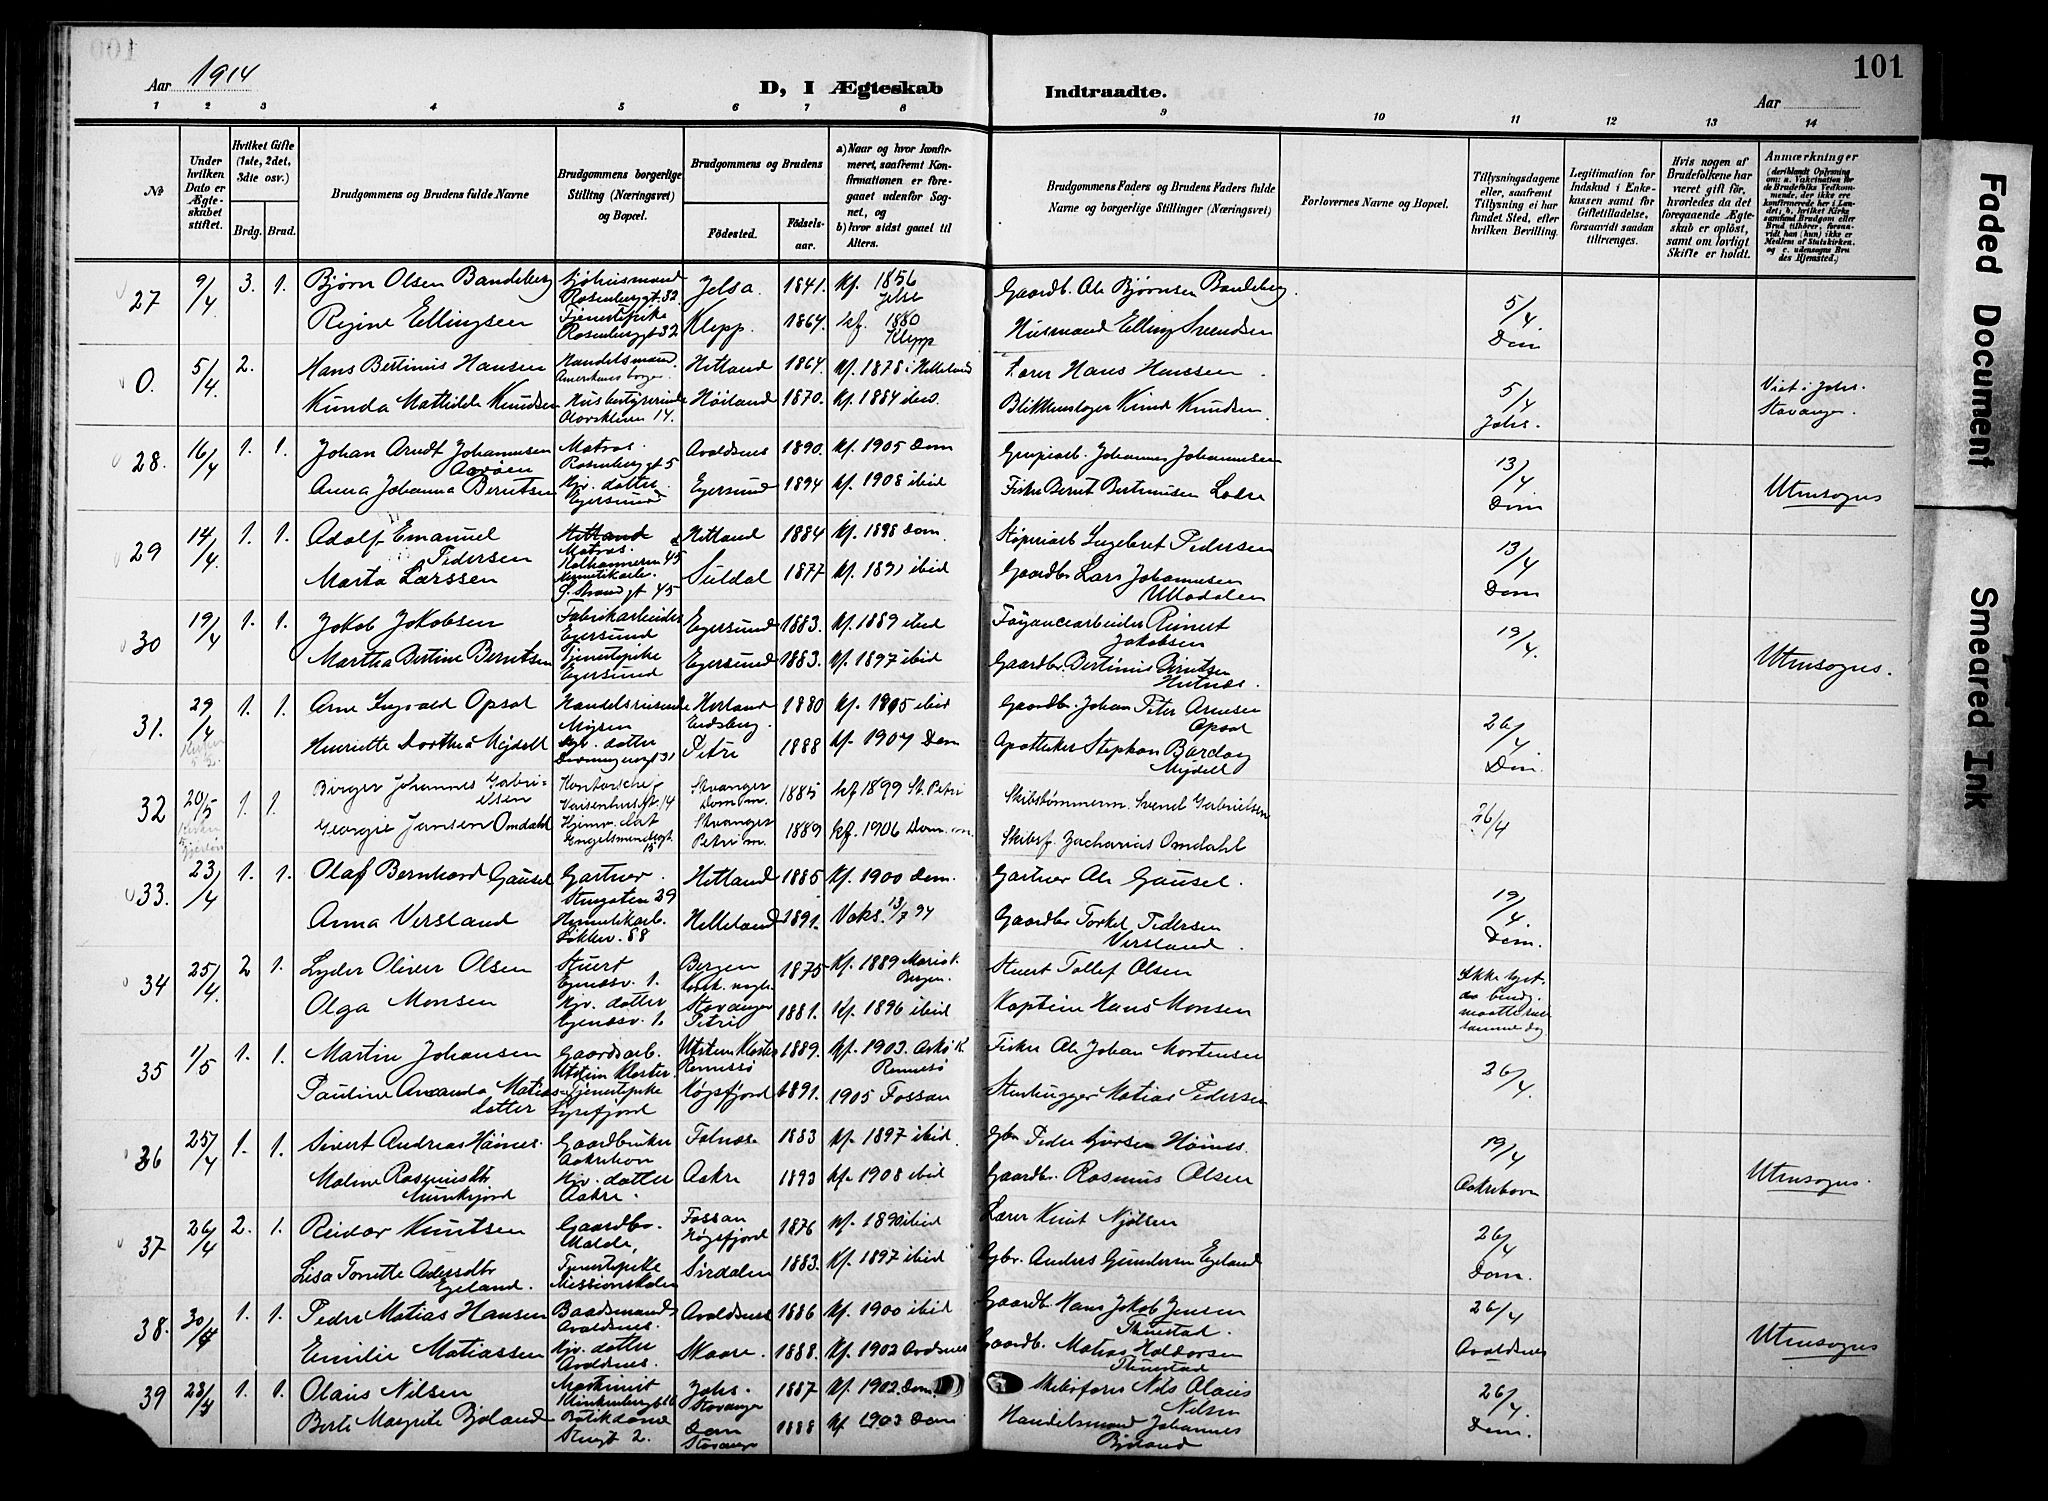 100
Aar 1914
D, I Ægteskab
Indtraadte.
101
Aar
1 2 3 4 5 6 7 8 9 10 11 12 13 14
No
Under hvilken Dato er Ægteskabet stiftet.
Hvilket Gifte (1ste, 2det, 3die osv.)
Brdg. Brud.
Brudgommens og Brudens fulde Navne
Brudgommens borgerlige Stilling (Næringsvei) og Bopæl.
Brudgommens og Brudens
Fødested. Fødselsaar.
a) Naar og hvor konfirmeret, saafremt Konfirmationen er foregaaet udenfor Sognet, og
b) hvor sidst gaaet til Alters.
Brudgommens Faders og Brudens Faders fulde Navne og borgerlige Stillinger (Næringsvei)
Forlovernes Navne og Bopæl.
Tillysningsdagene eller, saafremt Tillysning ei har fundet Sted, efter hvilken Bevilling.
Legitimation for Indskud i Enkekassen samt for Giftetilladelse, forsaavidt saadan tiltrænges.
Hvis nogen af Brudefolkene har været gift før, hvorledes da det foregaaende Ægteskab er opløst, samt om lovligt Skifte er holdt.
Anmærkninger
(deriblandt Oplysning om: a. Vakcination for de Brudefolks Vedkommende, der ikke ere konfirmerede her i Landet; b. hvilket Kirkesamfund Brudgom eller Brud tilhører, forsaavidt han (hun) ikke er Medlem af Statskirken, og c. udensogns Brudes Hjemsted.)
27 9/4 3. 1. Bjørn Olsen Bandeberg
Rosenbergt. 32 Jelsa. 1841. kf. 1856 Jelse
Gaardb. Ole Bjørnsen Bandeberg. 5/4 Dom
Regine Ellingsen Tjenestepike Rosenbergt 32 Klepp. 1864. kf. 1880 Klepp
Husmand Elling Svendsen
0. 5/4 2. Hans Bertinius Hansen Handelsmand. Hetland 1864. kf. 1878 i Helleland
Lærer Hans Hanssen. 5/4 Johs. Viet i Johs. Stavanger.
Kunda Mathilde Knudsen Husbestyrerinde 14. Høiland 1870. kf. 1884 ibid.
Blikkenslager Knud Knudsen
28. 16/4 1. 1. Johan Arndt Johannesen Matros. Rosenbergt 5 Avaldsnes 1890. kf. 1905 Dom
Johannes Johannesen 13/4 Dom Utensogns
Anna Johanna Berntsen Hjv. datter. Egersund Egersund 1894 kf. 1908 ibid
Fisker Bernt Bertinusen
29 14/4. 1. 1. Adolf Emanuel Pedersen Hetland Matros. 45 Hetland 1884 kf. 1898 Dom.
Støperiarb Ingebret Pedersen 13/4 Dom
Marta Larssen S. Strandgt 45 Suldal 1877 kf. 1891 ibid
Gaardbr Lars Johannesen
30 19/4 1. 1. Jakob Jakobsen Fabrikarbeider Egersund Egersund 1883. kf. 1889 ibid
Fayancearbeider Reinert Jakobsen 19/4. Utensogns.
Martha Bertine Berntsen Tjenestepike Egersund Egersund 1883. kf. 1897 ibid
Gaardbr. Bertinius Berntsen
31. 29/4 1. 1. Arne Ingvald Opsal Handelsreisende Mysen 1880 kf. 1905 ibid
Gaardb. Johan Peter Arnesen Opsal 26/4 Dom.
Henriette Dorthea Mejdell Hjv. datter 31 Petri 1888 kf. 1904 Dom
Apotheker Stephan Barday Mejdell
32 20/5 1. 1. Birger Johannes Gabrielsen Kontorchef Vaisenhusgt. 14 Stvanger Dom m. 1885 kf 1899 St. Petri
Skibstømmerm. Svend Gabrielsen 26/4
Georgie Jansen Omdahl Hjemv. dat Engelsmindegt. 15 Stvanger Petri m. 1889 kf. 1906 Dom. m.
Skibsf. Zacharias Omdahl
33. 23/4 1. 1. Olaf Bernhard Gausel Gartner. Stengaten 29 Hetland 1885 kf. 1900 Dom.
Gartner Ole Gausel. 19/4 Dom.
Anna Versland 88 Helleland 1891. Vaks. 13/7 94
Gaardbr Torkel Pedersen Versland.
34 25/4. 2 1. Lyder Oliver Olsen Stuert Egenæsv. 1. Bergen 1875 kf. 1889 Bergen.
Stuert Tollef Olsen
Olga Monsen Hjv. datter Egenæsv. 1. Stavanger Petri 1881. kf. 1896 ibid
Kaptein Hans Monsen
35 1/5 1. 1. Martin Johansen Gaardsarb. Utstein Kloster Utstein Kloster Rennesø 1889. kf. 1903. Askø K. Rennesø
Fisker Ole Johan Mortensen 26/4.
Pauline Amanda Matiasdatter Tjenestepike Lysefjord Høgsfjord 1891. 1905 Fossan
Stenhugger Matias Pedersen
36 25/4 1. 1. Sivert Andreas Høines. Gaardbruker 1883 kf. 1897 ibid.
Gbr Peder Høines. 19/4 Aakrehavn Utensogns.
Maline Rasmusdtr Hjv. datter Aakre. Aakre 1893 kf. 1908 ibid
Gaardbr. Rasmus Olsen
37 26/4 2. 1. Reidar Knutsen Gaardbr. Malde, Fossan Høgsfjord 1876 kf. 1890 ibid
Lærer Knut Njølsen 26/4 Dom.
Lisa Tonette Andersdtr Egeland. Tjenestepike Missionskolen Sirdalen 1883. kf. 1897 ibid
Gbr. Anders Gundersen Egeland
38. 30/4 1. 1. Peder Matias Hansen Baadsmand Avaldsnes. Avaldsnes 1886 kf. 1900 ibid
Gaardb. Hans Jakob Jensen 26/4 Avaldsnes Utensogns
Emilie Matiassen Hjv. datter Avaldsnes. Skaare. 1888. kf. 1902 Avaldsnes
Gaardb. Matias Haldorsen
39 28/4 1. 1. Olaus Nilsen Maskinist Johs. Stavanger 1887 kf. 1902. Dom.
Skibsfører Nils Olaus Nilsen 26/4. Dom.
Berte Margrete Bjoland Butikdame 2. Dom Stavanger 1888 kf 1903 Dom
Handelsmand Johannes Bjoland
Faded Document
Smeared Ink